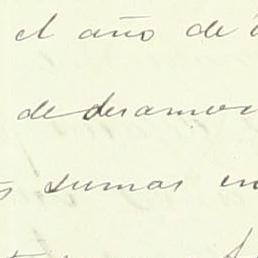 el año de
de desamor
sumas en